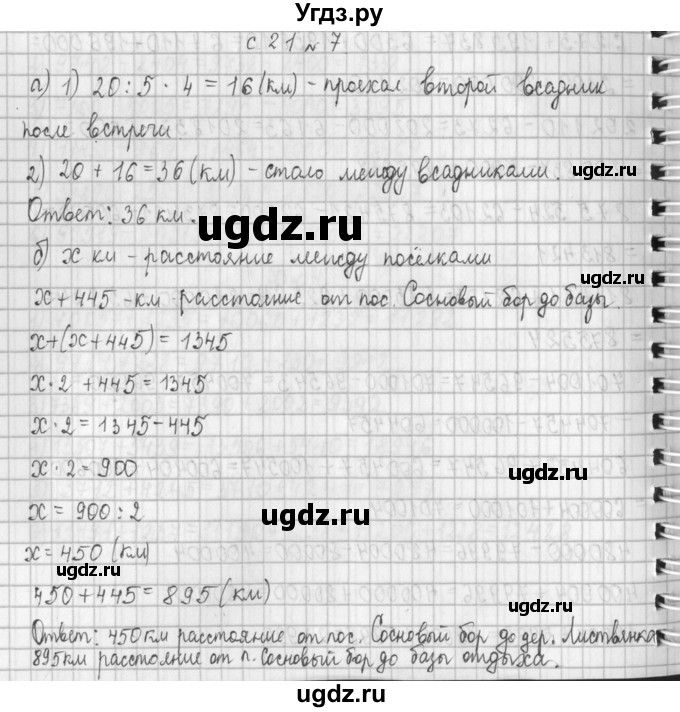 Угдз.ру
с 21 № 7
а) 1) 20 : 5 · 4 = 16 (км) - проехал второй всадник
после встречи
2) 20 + 16 = 36 (км) - стало между всадниками.
гдз.ру
Ответ: 36 км.
ugdz.ru
б) x км - расстояние между посёлками
ugdz.ru
x + 445 - км расстояние от пос. Сосновый бор до базы.
x + (x + 445) = 1345
x · 2 + 445 = 1345
x · 2 = 1345 - 445
x · 2 = 900
ugdz.ru
x = 900 : 2
ugdz.ru
x = 450 (км)
ugdz.ru
450 + 445 = 895 (км)
ugdz.ru
Ответ: 450 км расстояние от пос. Сосновый бор до дер. Листвянка
895 км расстояние от п. Сосновый бор до базы отдыха.
ugdz.ru